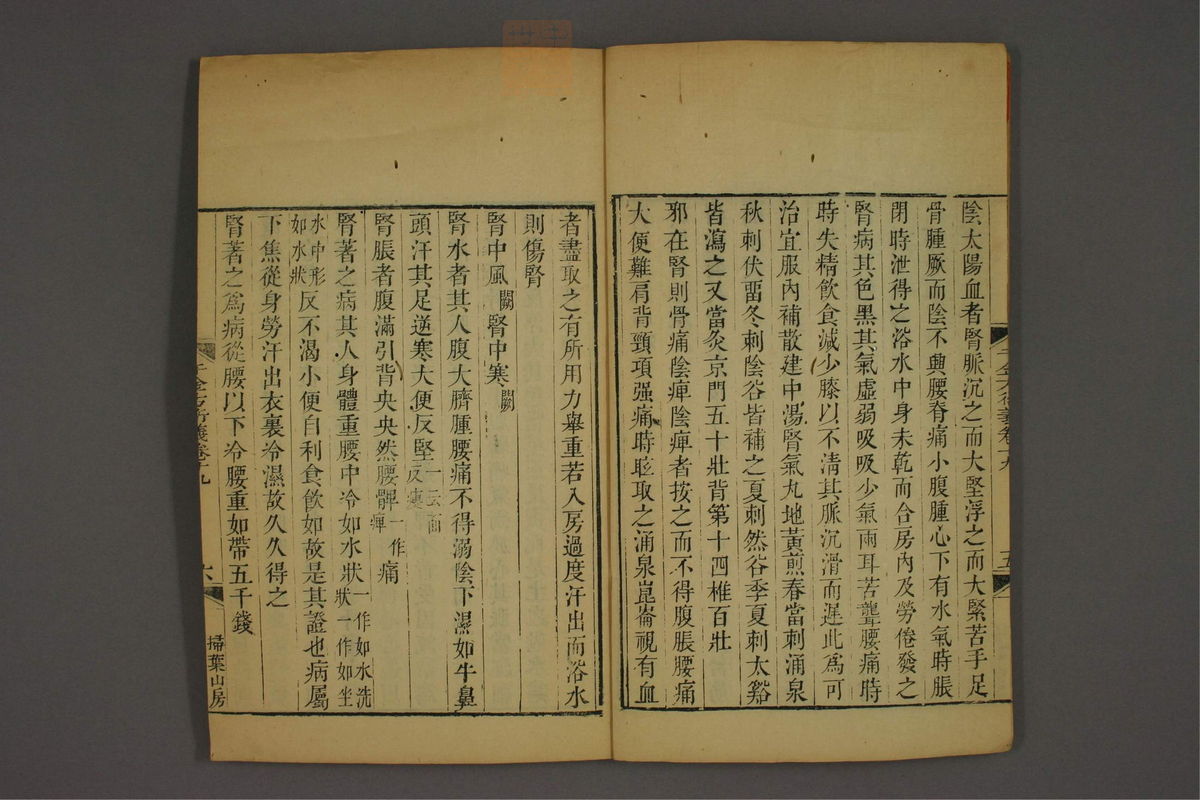 陰太陽血者腎脈沉之而大堅浮之而大緊苦手足
骨腫厥而陰不興腰脊痛小腹腫心下有水氣時脹
閉時泄得之浴水中身未乾而合房內及勞倦發之
腎病其色黑其氣虛弱吸吸少氣兩耳苦聾腰痛時
時失精飲食減少膝以下清其脈沉滑而遲此為可
治宜服內補散建中湯腎氣丸地黃煎春當刺涌泉
秋刺伏畱冬刺陰谷皆補之夏刺然谷季夏刺太谿
皆瀉之又當灸京門五十壯背第十四椎百壯
邪在腎則骨痛陰痺陰痺者按之而不得腹脹腰痛
大便難肩背頸項强痛時眩取之涌泉崑崙視有血
者盡取之有所用力舉重若入房過度汗出而浴水
則傷腎
腎中風闕腎中寒闕
腎水者其人腹大臍腫腰痛不得溺陰下濕如牛鼻
頭汗其足逆寒大便反堅一云面反瘦
腎脹者腹滿引背央央然腰髀一作痺痛
腎著之病其人身體重腰中冷如水狀一作如水洗狀一作如坐
水中形如水狀反不渴小便自利食飲如故是其證也病屬
下焦從身勞汗出衣裏冷濕故久久得之
腎著之為病從腰以下冷腰重如帶五千錢
千金方衍義卷十九
六
掃葉山房